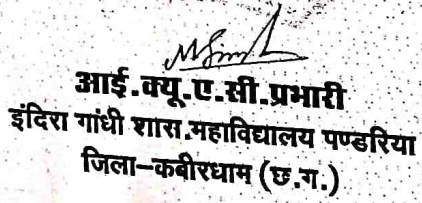 आई.क्यू.ए.सी.प्रभारी
इंदिरा गांधी शास.महाविद्यालय पण्डरिया
जिला-कबीरधाम (छ.ग.)